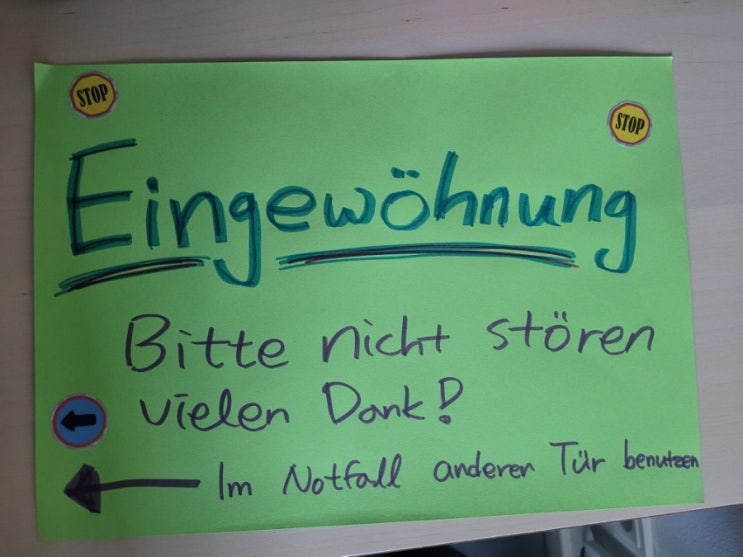 STOP
STOP
Eingewöhnung
Bitte nicht stören
vielen Dank!
Im Notfall anderen Tür benutzen